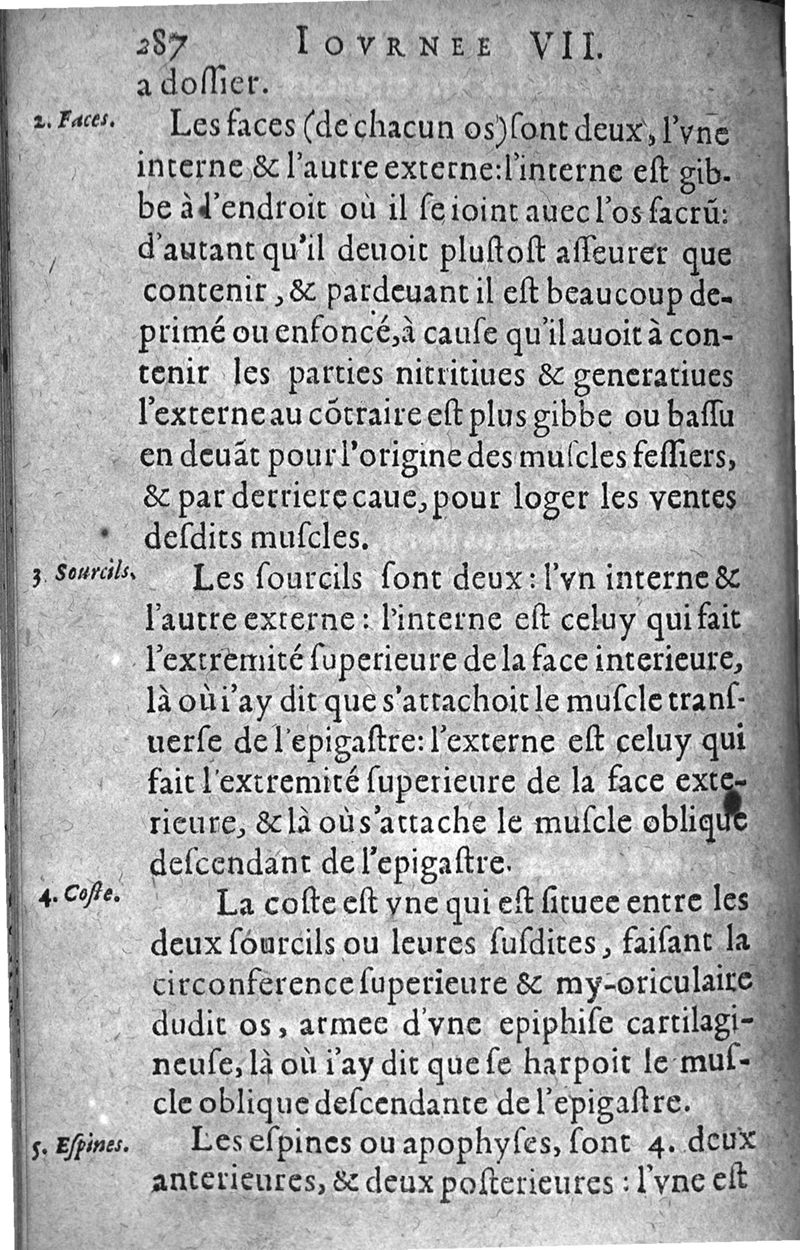 287 IOVRNEE VII.
a doſſier.
2. Faces. Les faces (de chacun os) ſont deux, l'vne
interne & l'autre externe: l'interne eſt gib-
be à l'endroit où il ſe ioint auec l'os ſacrũ:
d'autant qu'il deuoit pluſtoſt aſſeurer que
contenir, & pardeuant il eſt beaucoup de-
primé ou enfoncé, à cauſe qu'il auoit à con-
tenir les parties nitritiues & generatiues
l'externe au cõtraire eſt plus gibbe ou baſſu
en deuãt pour l'origine des muſcles feſſiers,
& par derriere caue, pour loger les ventes
deſdits muſcles.
3. Sourcils. Les ſourcils ſont deux: l'vn interne &
l'autre externe: l'interne eſt celuy qui fait
l'extremité ſuperieure de la face interieure,
là où i'ay dit que s'attachoit le muſcle tranſ-
uerſe de l'epigaſtre: l'externe eſt celuy qui
fait l'extremité ſuperieure de la face exte-
rieure, & là où s'attache le muſcle oblique
deſcendant de l'epigaſtre.
4. Coſte. La coſte eſt vne qui eſt ſituee entre les
deux ſourcils ou leures ſuſdites, faiſant la
circonference ſuperieure & my-oriculaire
dudit os, armee d'vne epiphiſe cartilagi-
neuſe, là où i'ay dit que ſe harpoit le muſ-
cle oblique deſcendante de l'epigaſtre.
5. Eſpines. Les eſpines ou apophyſes, ſont 4. deux
anterieures, & deux poſterieures: l'vne eſt